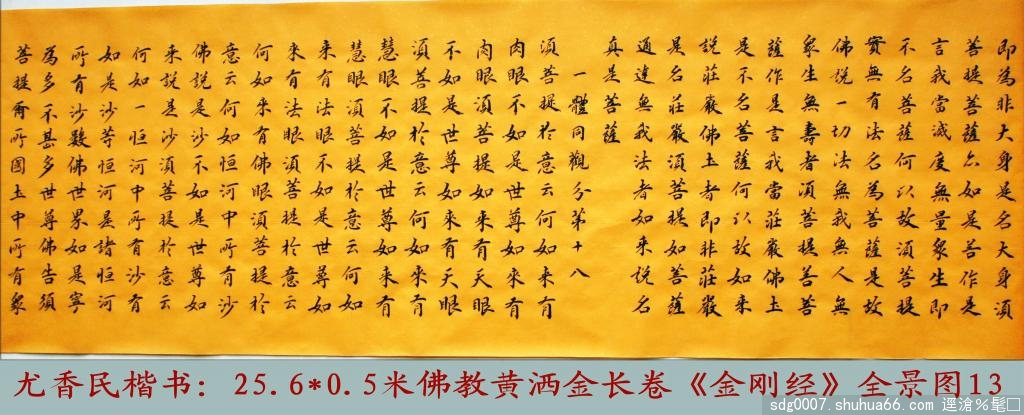 即為非大身是名大身須
菩提菩薩亦如是若作是
言我當滅度無量眾生即
不名菩薩何以故須菩提
實無有法名為菩薩是故
佛說一切法無我無人無
眾生無壽者須菩提若菩
薩作是言我當莊嚴佛土
是不名菩薩何以故如來
說莊嚴佛土者即非莊嚴
是名莊嚴須菩提如菩薩
通達無我法者如來說名
真是菩薩
一體同觀分第十八
須菩提於意云何如來有
肉眼不如是世尊如來有
肉眼須菩提如來有天眼
不如是世尊如來有天眼
須菩提於意云何如來有
慧眼不如是世尊如來有
慧眼須菩提於意云何如
來有法眼不如是世尊如
來有法眼須菩提於意云
何如來有佛眼須菩提於
意云何如恒河中所有沙
佛說是沙不如是世尊如
來說是沙須菩提於意云
何如一恒河中所有沙有
如是沙等恒河是諸恒河
所有沙數佛世界如是寧
為多不甚多世尊佛告須
菩提爾所國土中所有眾
尤香民楷书：25.6*0.5米佛教黄洒金长卷《金刚经》全景图13
sdg0007.shuhua66.com